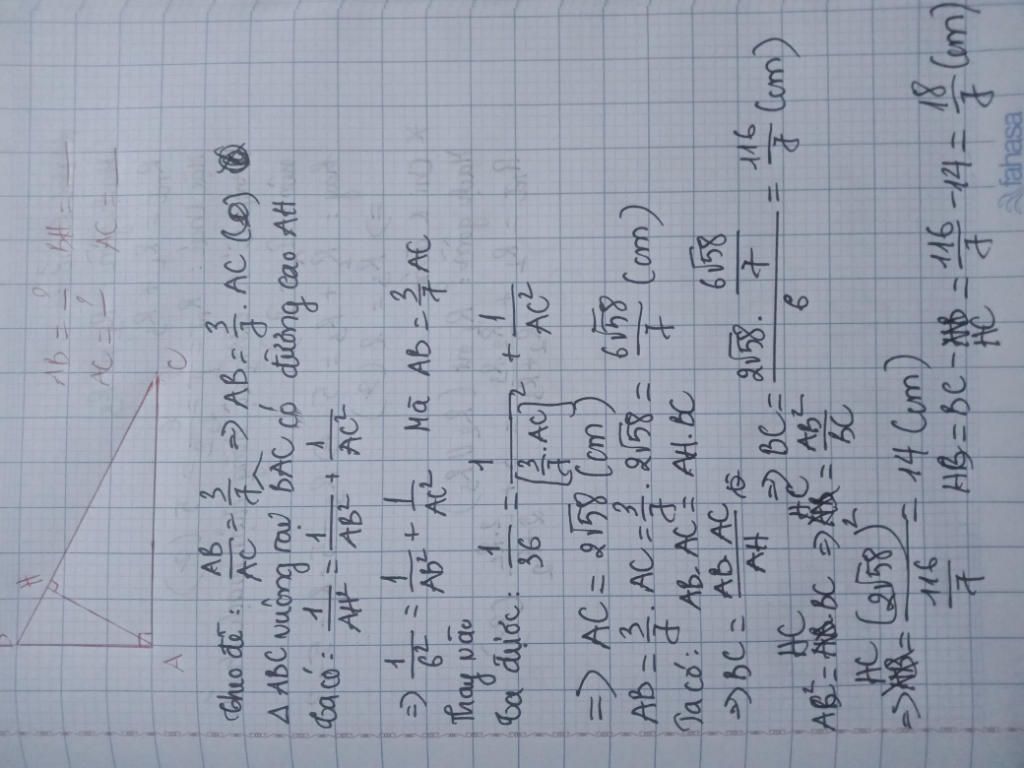 AB = ? BH =
AC = ? AC =
H
C
A
Theo đề: AB/AC = 3/7 => AB = 3/7 . AC
Δ ABC vuông tại BAC có đường cao AH
Ta có: 1/AH² = 1/AB² + 1/AC²
=> 1/6² = 1/AB² + 1/AC² Mà AB = 3/7 AC
Thay vào
Ta được: 1/36 = 1/[3/7 . AC]² + 1/AC²
=> AC = 2√58 (cm)
AB = 3/7 . AC = 3/7 . 2√58 = 6√58/7 (cm)
Ta có: AB. AC = AH. BC
=> BC = AB. AC/AH => BC = 2√58 . 6√58/7 / 6 = 116/7 (cm)
AB² = HC . BC => HC = AB²/BC
=> HC = (2√58)² / 116/7 = 14 (cm)
HB = BC - HC = 116/7 - 14 = 18/7 (cm)
fahasa